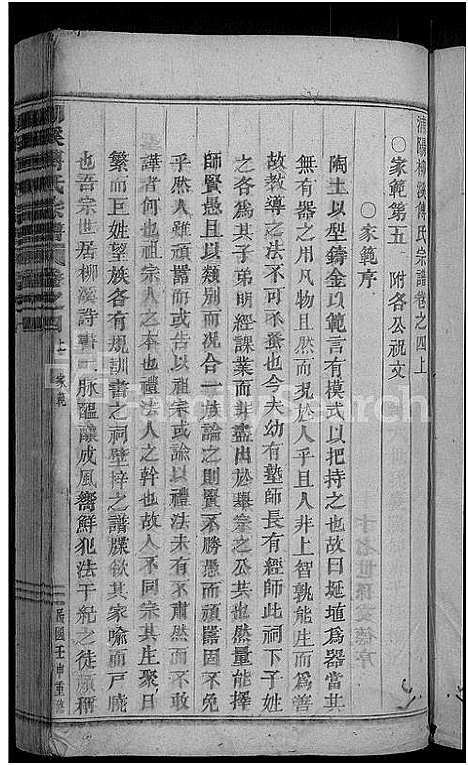 浦陽柳溪傅氏宗譜卷之四上
○家範第五 附各公祝文
○家範序
陶土以型鑄金以範言有模式以把持之也故曰埏埴為器當其
無有器之用凡物且然而况於人乎且人非上智孰能生而為善
故教導之法不可不蚤也今夫幼有塾師長有經師此祠下子姓
之各為其子弟明經課業而非盡出於舉業之公共也然量能擇
師賢愚且以類別而况合一族論之則賢不勝愚而頑嚚固不免
乎然人雖頑嚚而告以祖宗或諭以禮法未有不肅然而不
譁者何也祖宗人之本也禮法人之幹也故人不同宗其生聚日
繁而巨姓望族各有規訓書之祠壁梓之譜牒欲其家喻而戶曉
也吾宗世居柳溪詩書一脈醞釀成風嚮鮮犯法于紀之徒頗稱
柳溪傅氏宗譜
卷之四
上
家範
民國壬申重修
FamilySearch